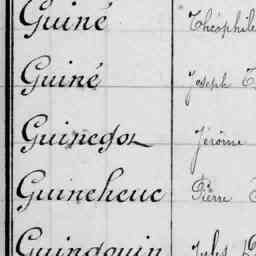 Guiné Théophile
Guiné Joseph
Guinegol Jérôme
Guineheuc Pierre
Guingouin Jules